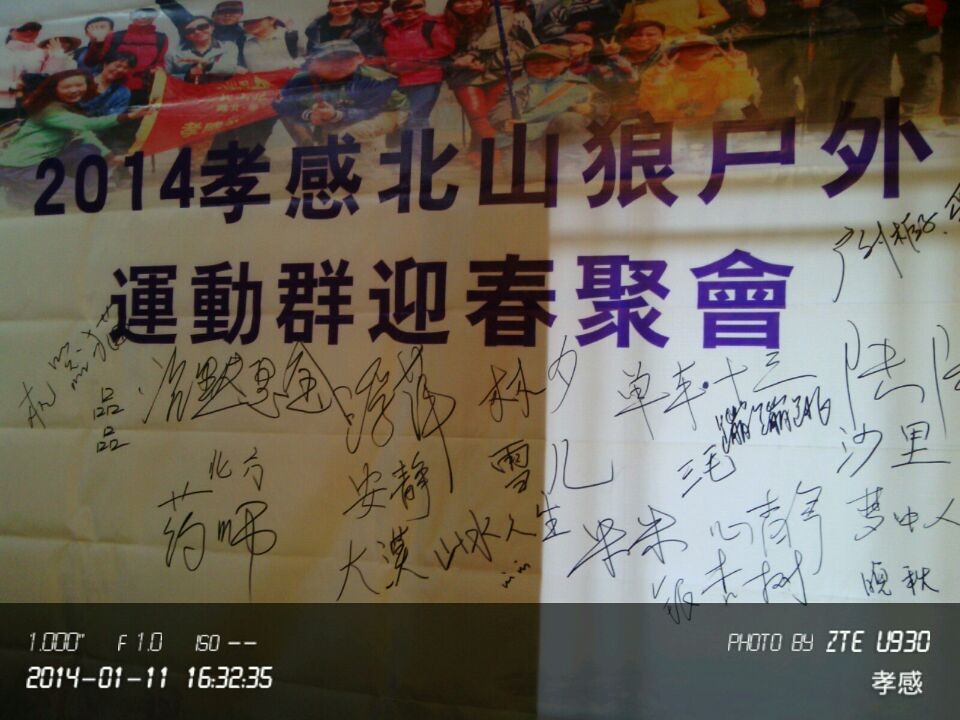 2014孝感北山狼户外
運動群迎春聚會
品品
林夕
单车·十三
北方
药师
安静
雪儿
三毛
沙里
大漠
山水人生
米米
心静
梦中人
银杏树
晓秋
1.000" F 1.0 ISO --
PHOTO BY ZTE U930
2014-01-11 16:32:35
孝感